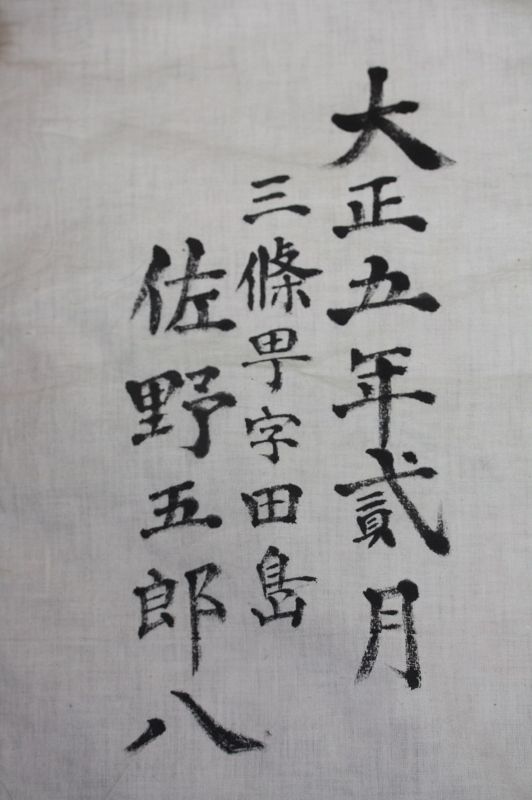 大正五年貳月
三條甼字田島
佐野五郎八